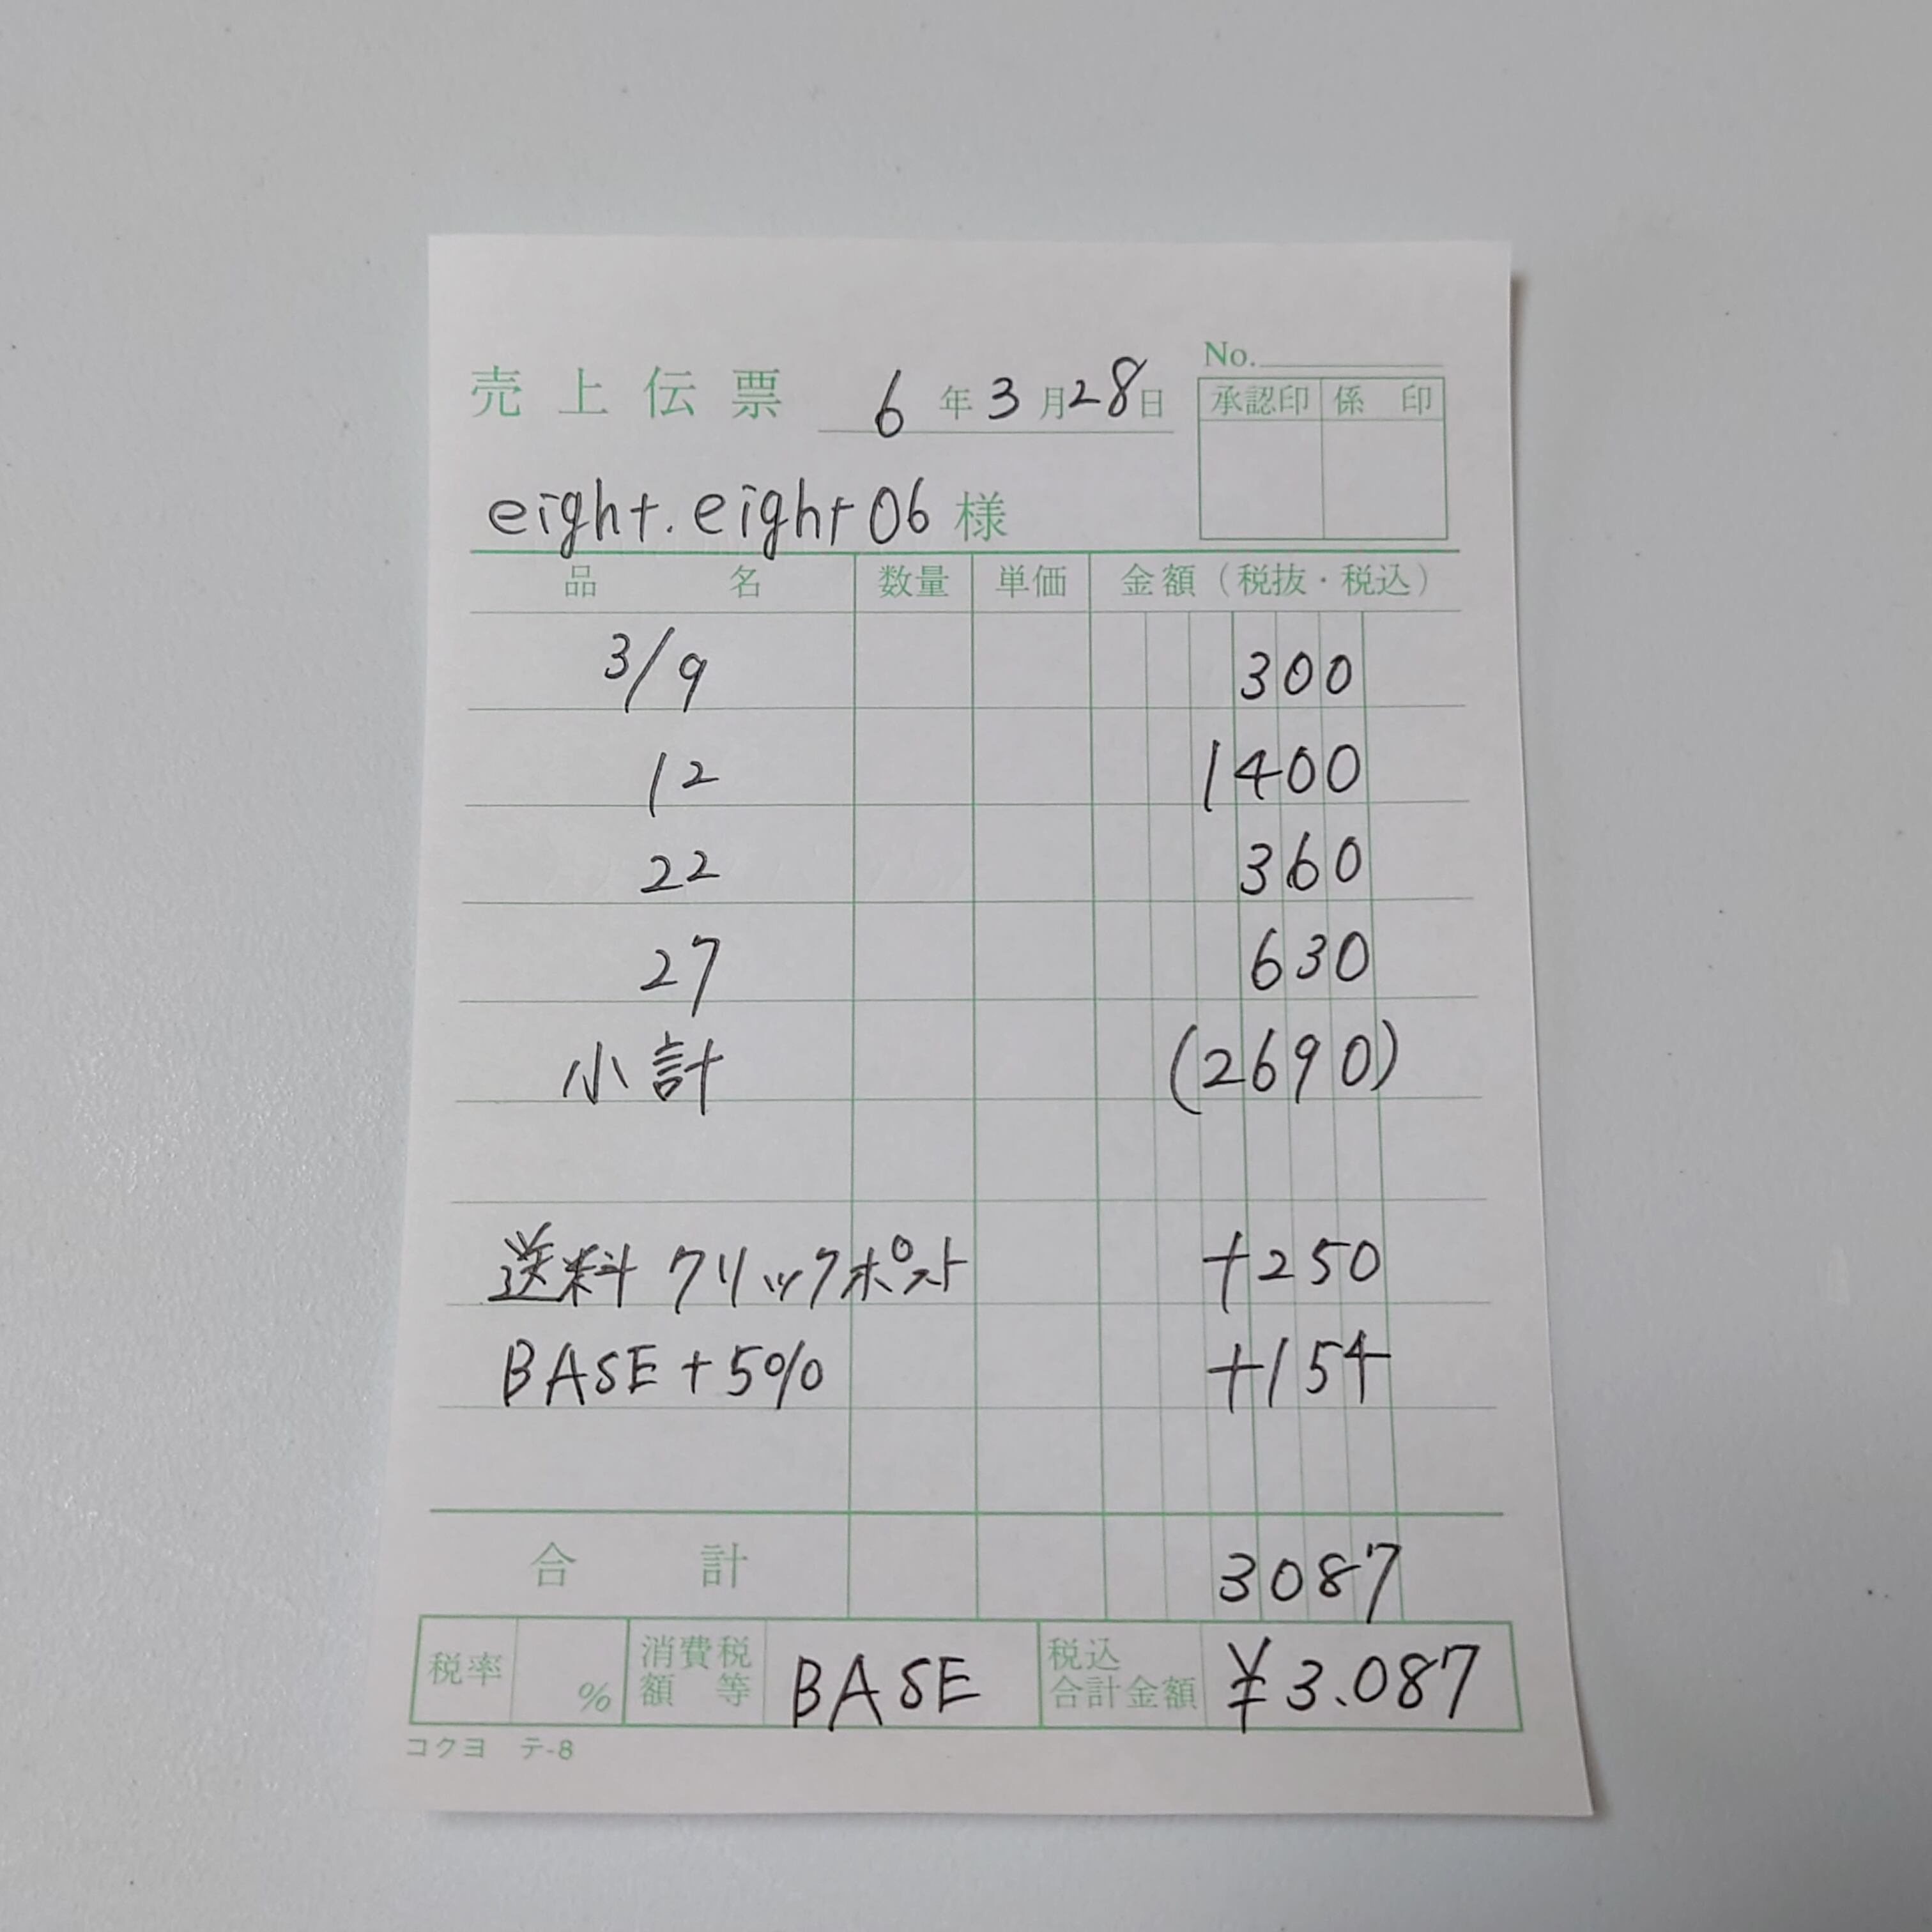 No.
売上伝票 6年3月28日
承認印 係印
eight.eight06様
品名 数量 単価 金額(税抜・税込)
3/9 300
12 1400
22 360
27 630
小計 (2690)
送料 クリックポスト +250
BASE+5% +154
合計 3087
税率 % 消費税額等 BASE 税込合計金額 ¥3.087
コクヨ テ-8